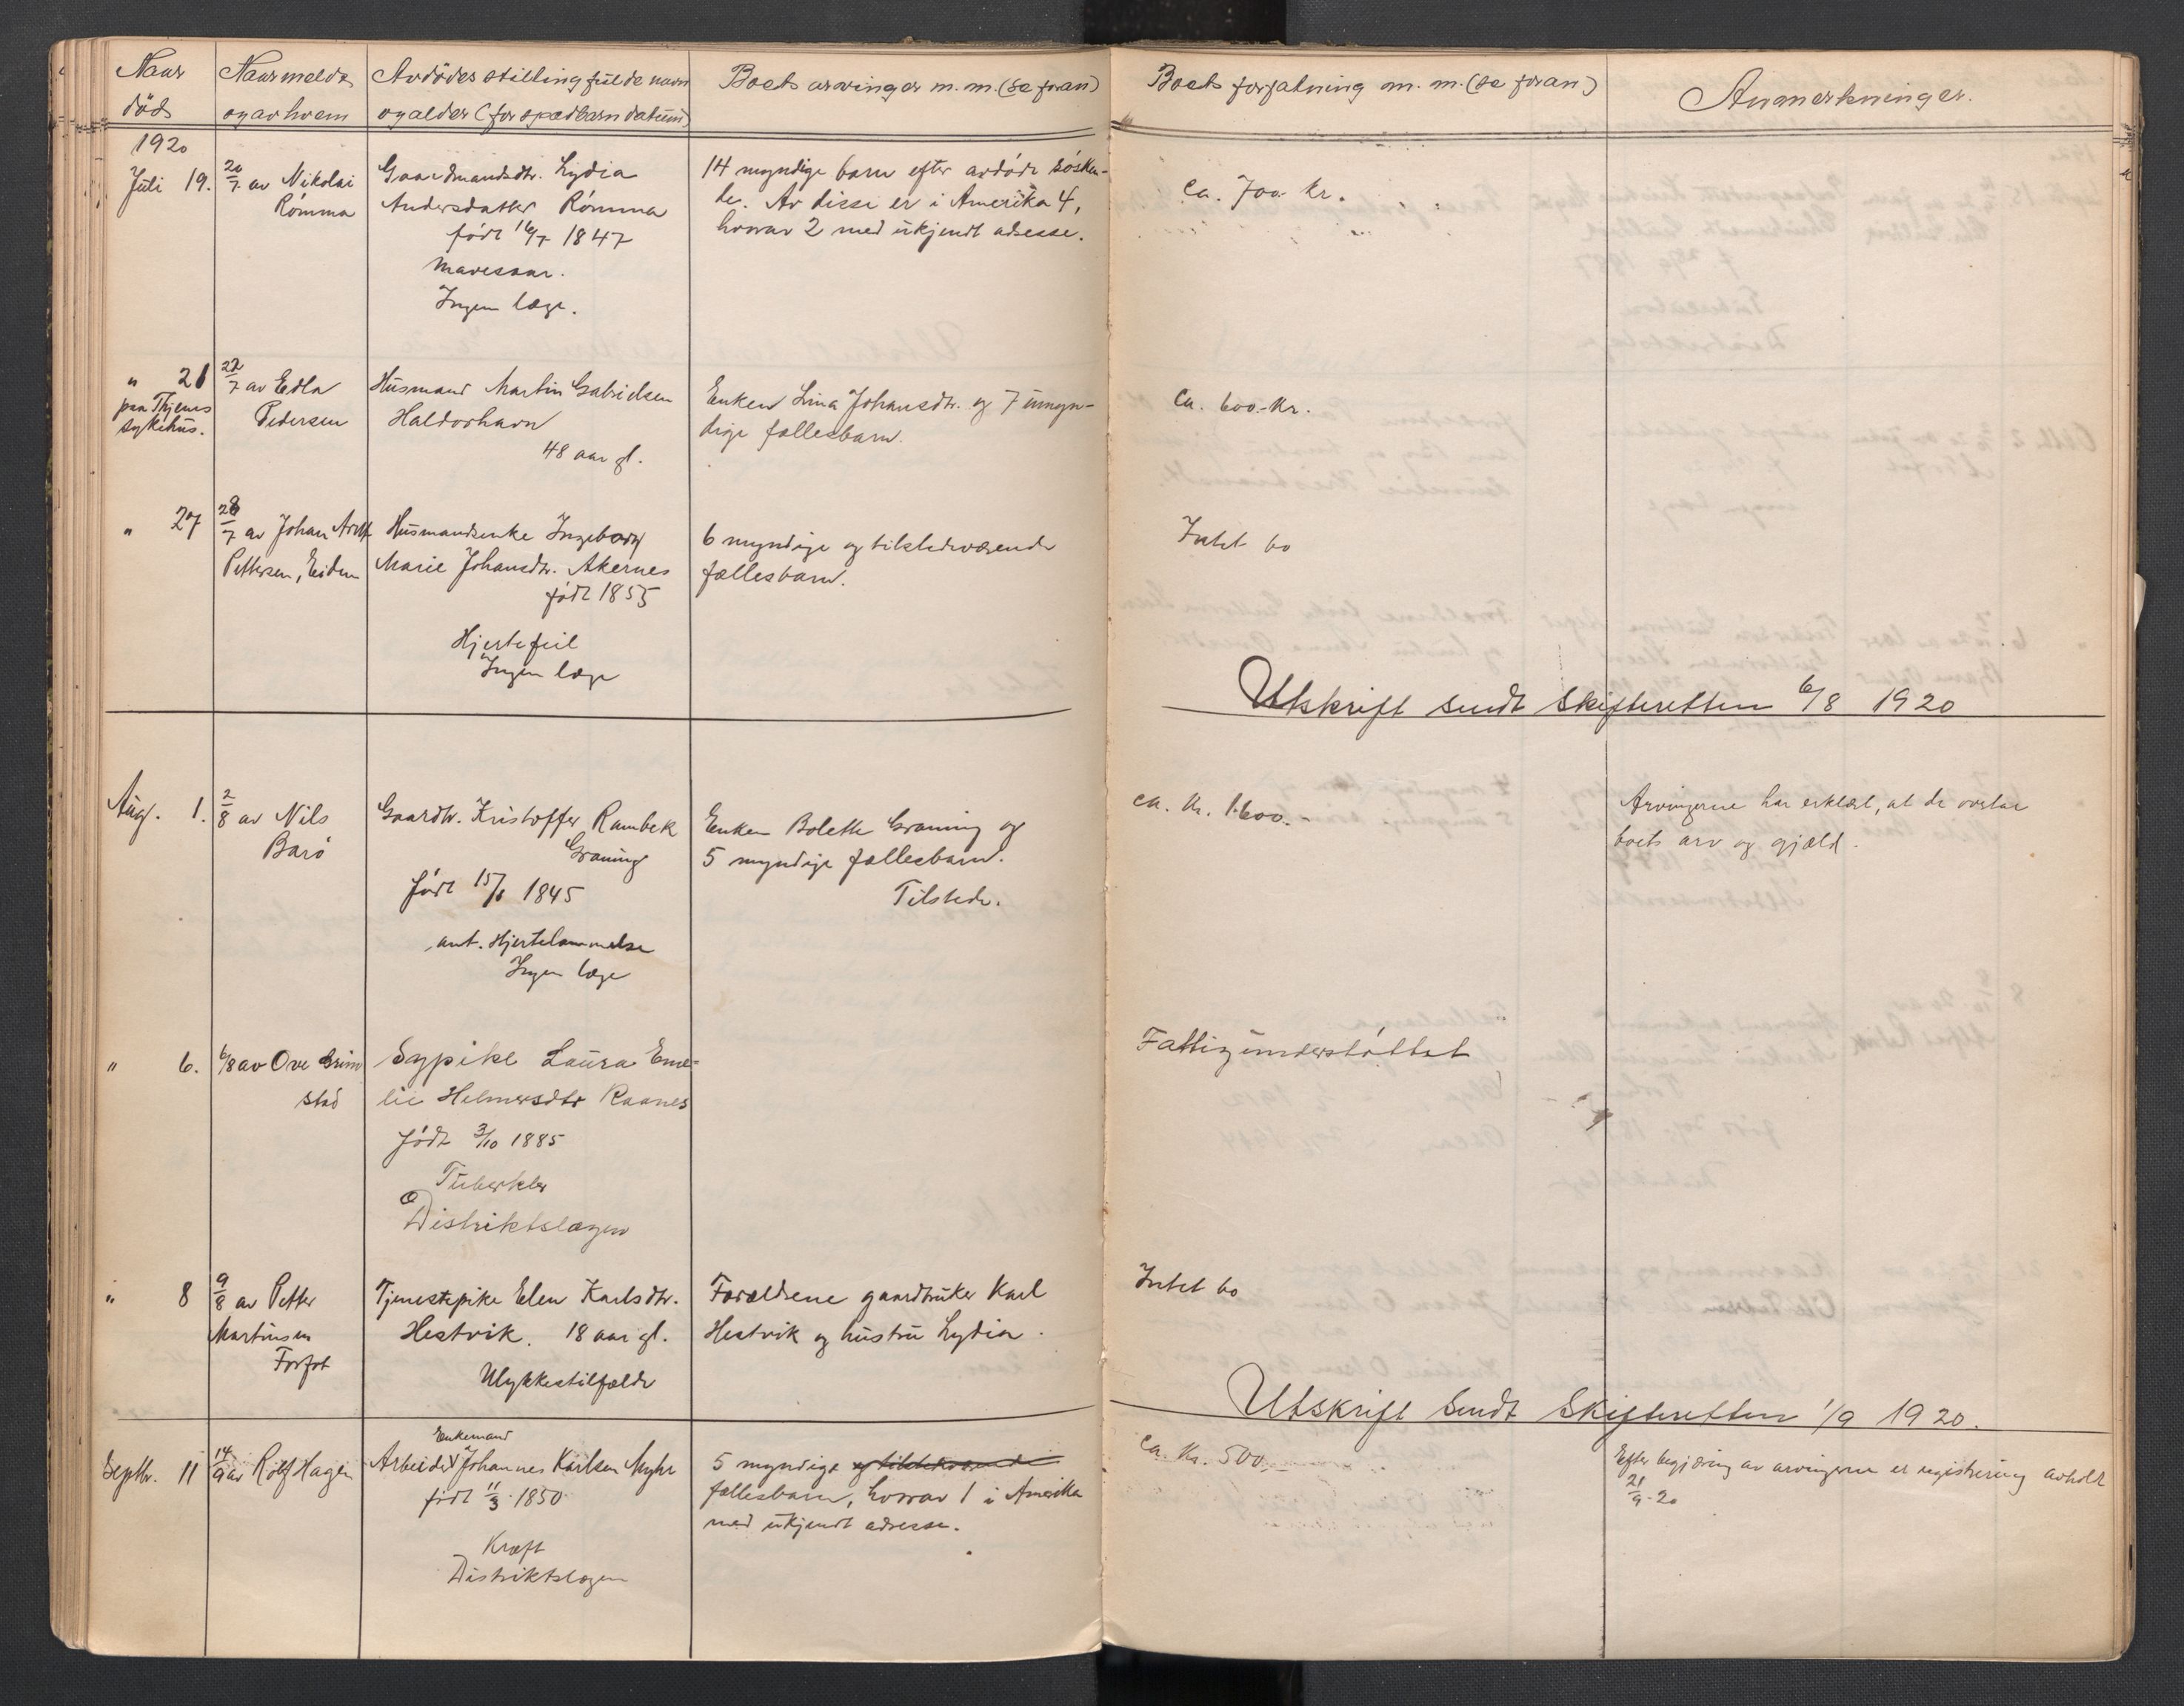 Naar død
Naar meldt og av hvem
Avdødes stilling fulde navn og alder (for spædbarn datum)
Boets arvinger m. m. (se foran)
Boets forfatning m. m. (se foran)
Anmerkninger.
1920
Juli 19.
20/7 av Nikolai
Rómma
Gaardmandsdtr. Lydia
Andersdatter Rómma
født 16/7 1847
Mavesaar.
Ingen læge.
14 myndige barn efter avdøde søsken-
de. Av disse er i Amerika 4,
hvorav 2 med ukjendt adresse.
ca. 700 kr.
" 21
paa Thjenes
sykehus.
22/7 av Edla
Pedersen
Husmand Martin Gabrielsen
Haldorhavn
48 aar gl.
Enken Lina Johansdtr. og 7 umyn-
dige fællesbarn.
Ca. 600.- Kr.
" 27
28/7 av Johan Arnt
Pettersen, Eidem
Husmandsenke Ingeborg
Marie Johansdtr. Akernes
født 1855
Hjertefeil
Ingen læge
6 myndige og tilstedeværende
fællesbarn.
Intet bo
Utskrift sendt Skifteretten 6/8 1920
Aug. 1.
2/8 av Nils
Barø
Gaardbr. Kristoffer Rambek
Graning
født 15/8 1845
ant. Hjertelammelse
Ingen læge
Enken Bolette Graning og
5 myndige fællesbarn.
Tilstede.
ca. kr. 1.600.-
Arvingerne har erklært, at de overtar
boets arv og gjæld.
" 6.
6/8 av Ove Grim
stad
Sypike Laura Eme-
lie Helmersdtr Raanes
født 3/10 1885
Tuberkler
Distriktslægen
Fattigunderstøttet
" 8
9/8 av Petter
Martinsen
Forfot
Tjenestepike Elen Karlsdtr.
Hestvik. 18 aar gl.
Ulykkestilfælde
Forældrene gaardbruker Karl
Hestvik og hustru Lydia.
Intet bo
Utskrift sendt Skifteretten 1/9 1920.
Septbr. 11
14/9 av Rolf Hagen
Enkemand
Arbeider Johannes Karlsen Myhr
født 11/3 1850
Kræft
Distriktslægen
5 myndige og tilstedeværende
fællesbarn, hvorav 1 i Amerika
med ukjendt adresse.
Ca. Kr. 500.-
Efter begjæring av arvingerne er registrering avholdt
21/9-20